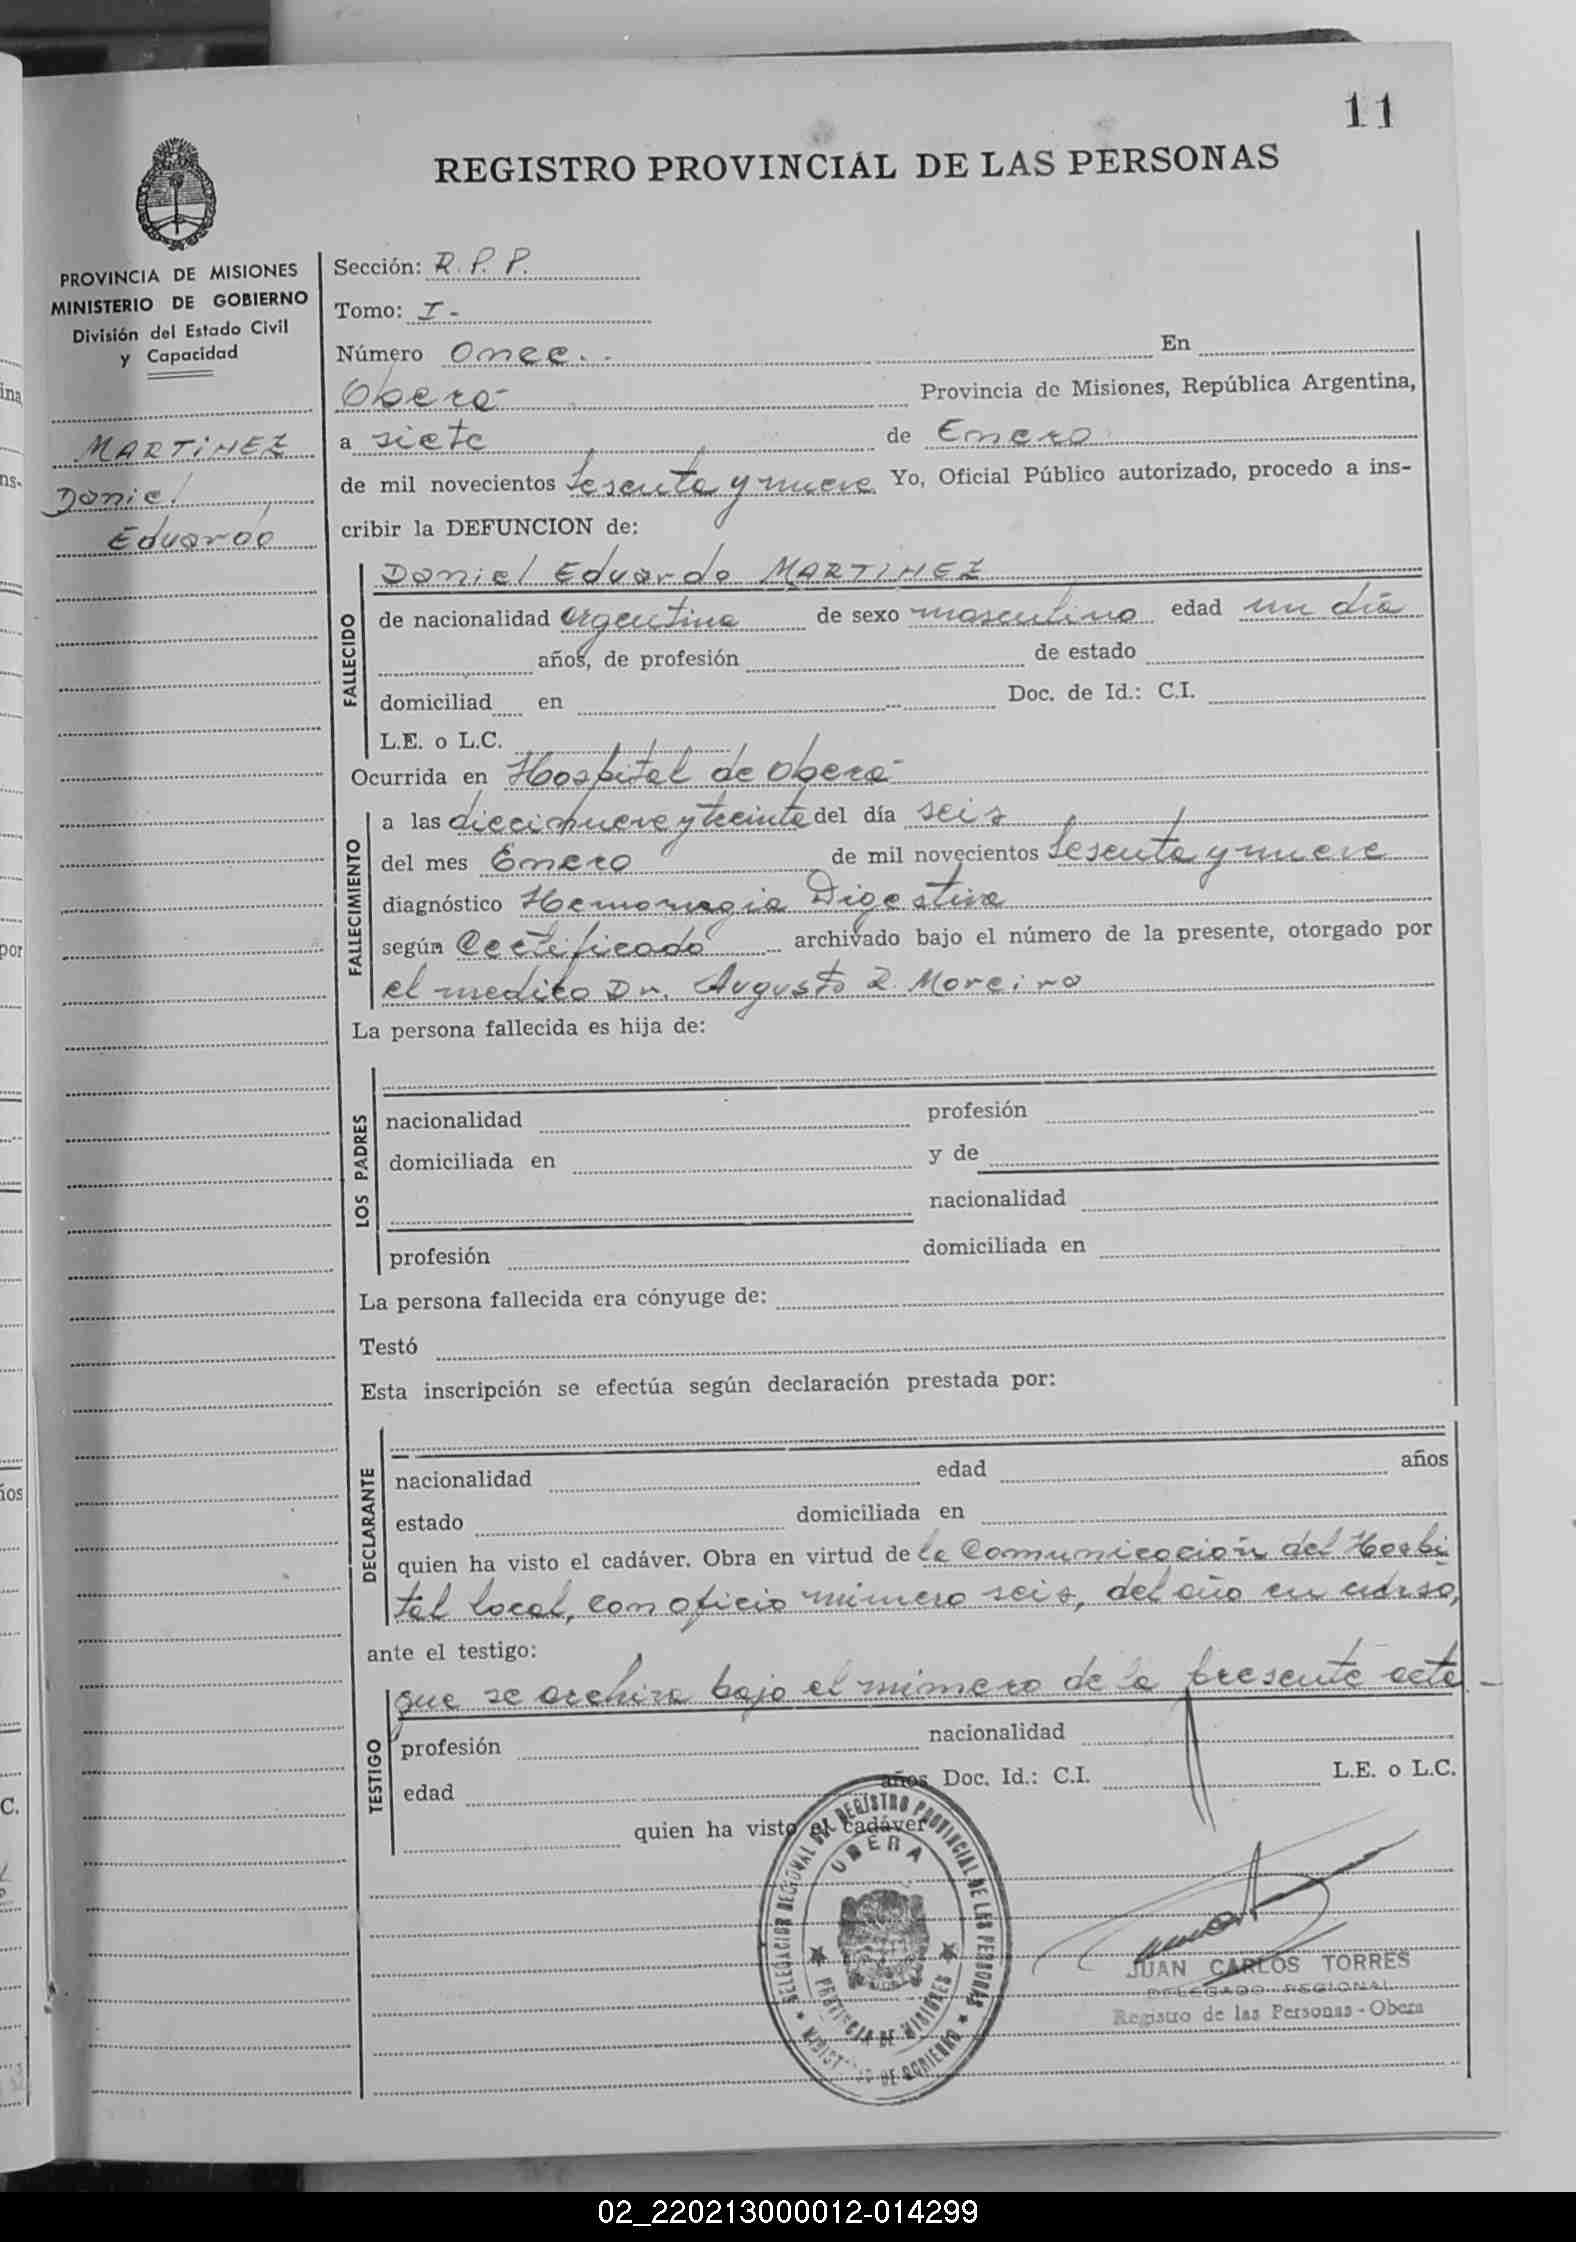 11
REGISTRO PROVINCIAL DE LAS PERSONAS
PROVINCIA DE MISIONES
MINISTERIO DE GOBIERNO
División del Estado Civil
y Capacidad
MARTINEZ
Daniel
Eduardo
Sección: R. P. P.
Tomo: I -
Número Once. En
Oberá Provincia de Misiones, República Argentina,
a siete de Enero
de mil novecientos sesenta y nueve Yo, Oficial Público autorizado, procedo a ins-
cribir la DEFUNCION de:
FALLECIDO
Daniel Eduardo MARTINEZ
de nacionalidad argentina de sexo masculino edad un día
años, de profesión de estado
domiciliad en Doc. de Id.: C.I.
L.E. o L.C.
Ocurrida en Hospital de Oberá
FALLECIMIENTO
a las diecinueve y treinta del día seis
del mes Enero de mil novecientos sesenta y nueve
diagnóstico Hemorragia Digestiva
según Certificado archivado bajo el número de la presente, otorgado por
el medico Dr. Augusto R. Moreira
La persona fallecida es hija de:
LOS PADRES
nacionalidad profesión
domiciliada en y de
nacionalidad
profesión domiciliada en
La persona fallecida era cónyuge de:
Testó
Esta inscripción se efectúa según declaración prestada por:
DECLARANTE
nacionalidad edad años
estado domiciliada en
quien ha visto el cadáver. Obra en virtud de la Comunicación del Hospi
tal local, con oficio número seis, del año en curso,
ante el testigo:
que se archiva bajo el número de la presente acta. -
TESTIGO
profesión nacionalidad
edad años Doc. Id.: C.I. L.E. o L.C.
quien ha visto el cadáver
DELEGACION REGIONAL DEL REGISTRO PROVINCIAL DE LAS PERSONAS
OBERA
PROVINCIA DE MISIONES
MINISTERIO DE GOBIERNO
JUAN CARLOS TORRES
DELEGADO REGIONAL
Registro de las Personas - Obera
ina
ns-
por
ños
C.
02_220213000012-014299